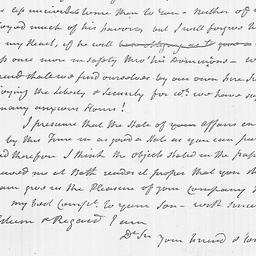 up universal some than to You - Neither of
joyed much of his favours but I will forgive h
my Heart, if he will
us once more in safety thro' his Dominions - w
and shall we find ourselves by our own fire
joying the liberty & Security for wch. we have
many anxious Hours!
I presume that the State of your affairs
by this Time in as good a State as you can
and therefore I think the Objects stated in the pape
me at Bath rendered proper that you sh
give us the Pleasure of your Company
my best Compts. to your Son - with Since
Esteem & Regard I am
Dr Sir your friend &